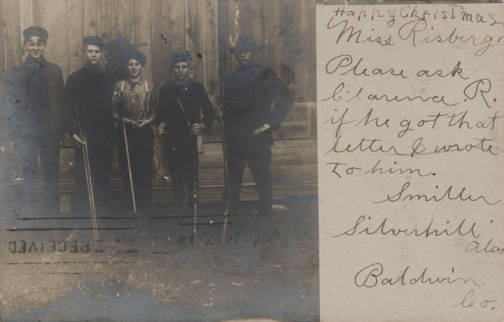 Happy Christmas
Miss Risberg
Please ask
Clarence R.
if he got that
letter I wrote
to him.
Smiller
Silverhill
Ala
Baldwin
Co.
RECEIVED